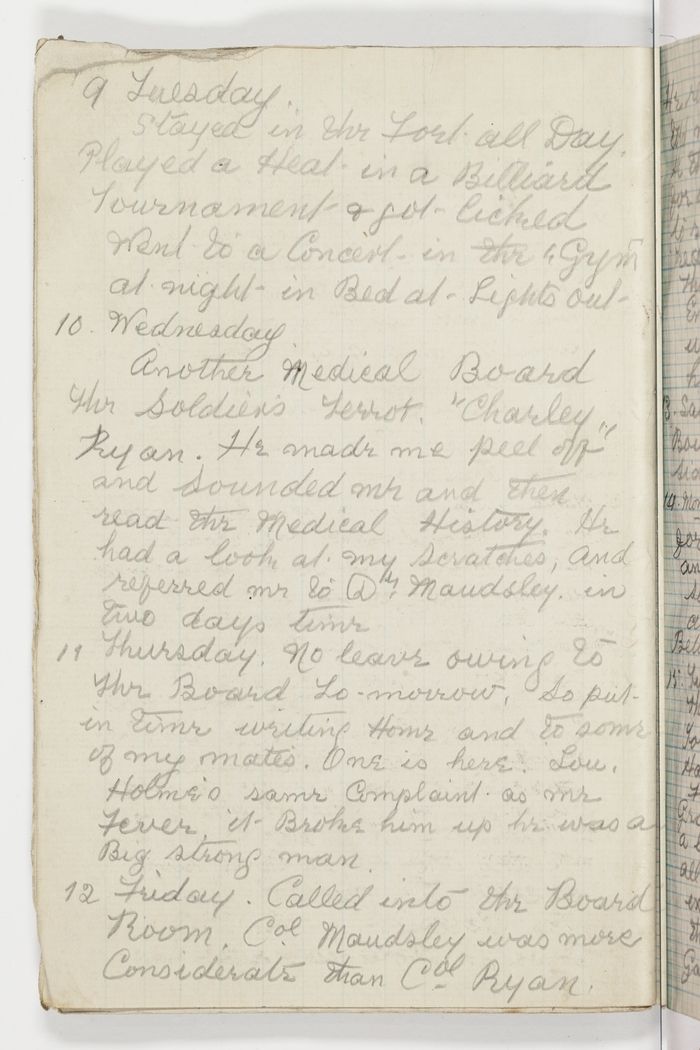 9 Tuesday.
Stayed in the Fort all Day.
Played a Heat in a Billiard
Tournament & got licked
Went to a Concert in the "Gym
at night in Bed at Lights out
10. Wednesday
Another Medical Board
The Soldiers Terror. "Charley"
Ryan. He made me peel off
and sounded me and then
read the Medical History. He
had a look at my scratches, and
referred me to Dr. Maudsley. in
two days time
11 Thursday. No leave owing to
the Board To-morrow. So put
in time writing Home and to some
of my mates. One is here. Lou.
Holmes same Complaint as me
Fever, it Broke him up he was a
Big strong man.
12 Friday. Called into the Board
Room. Col Maudsley was more
Considerate than Col Ryan.